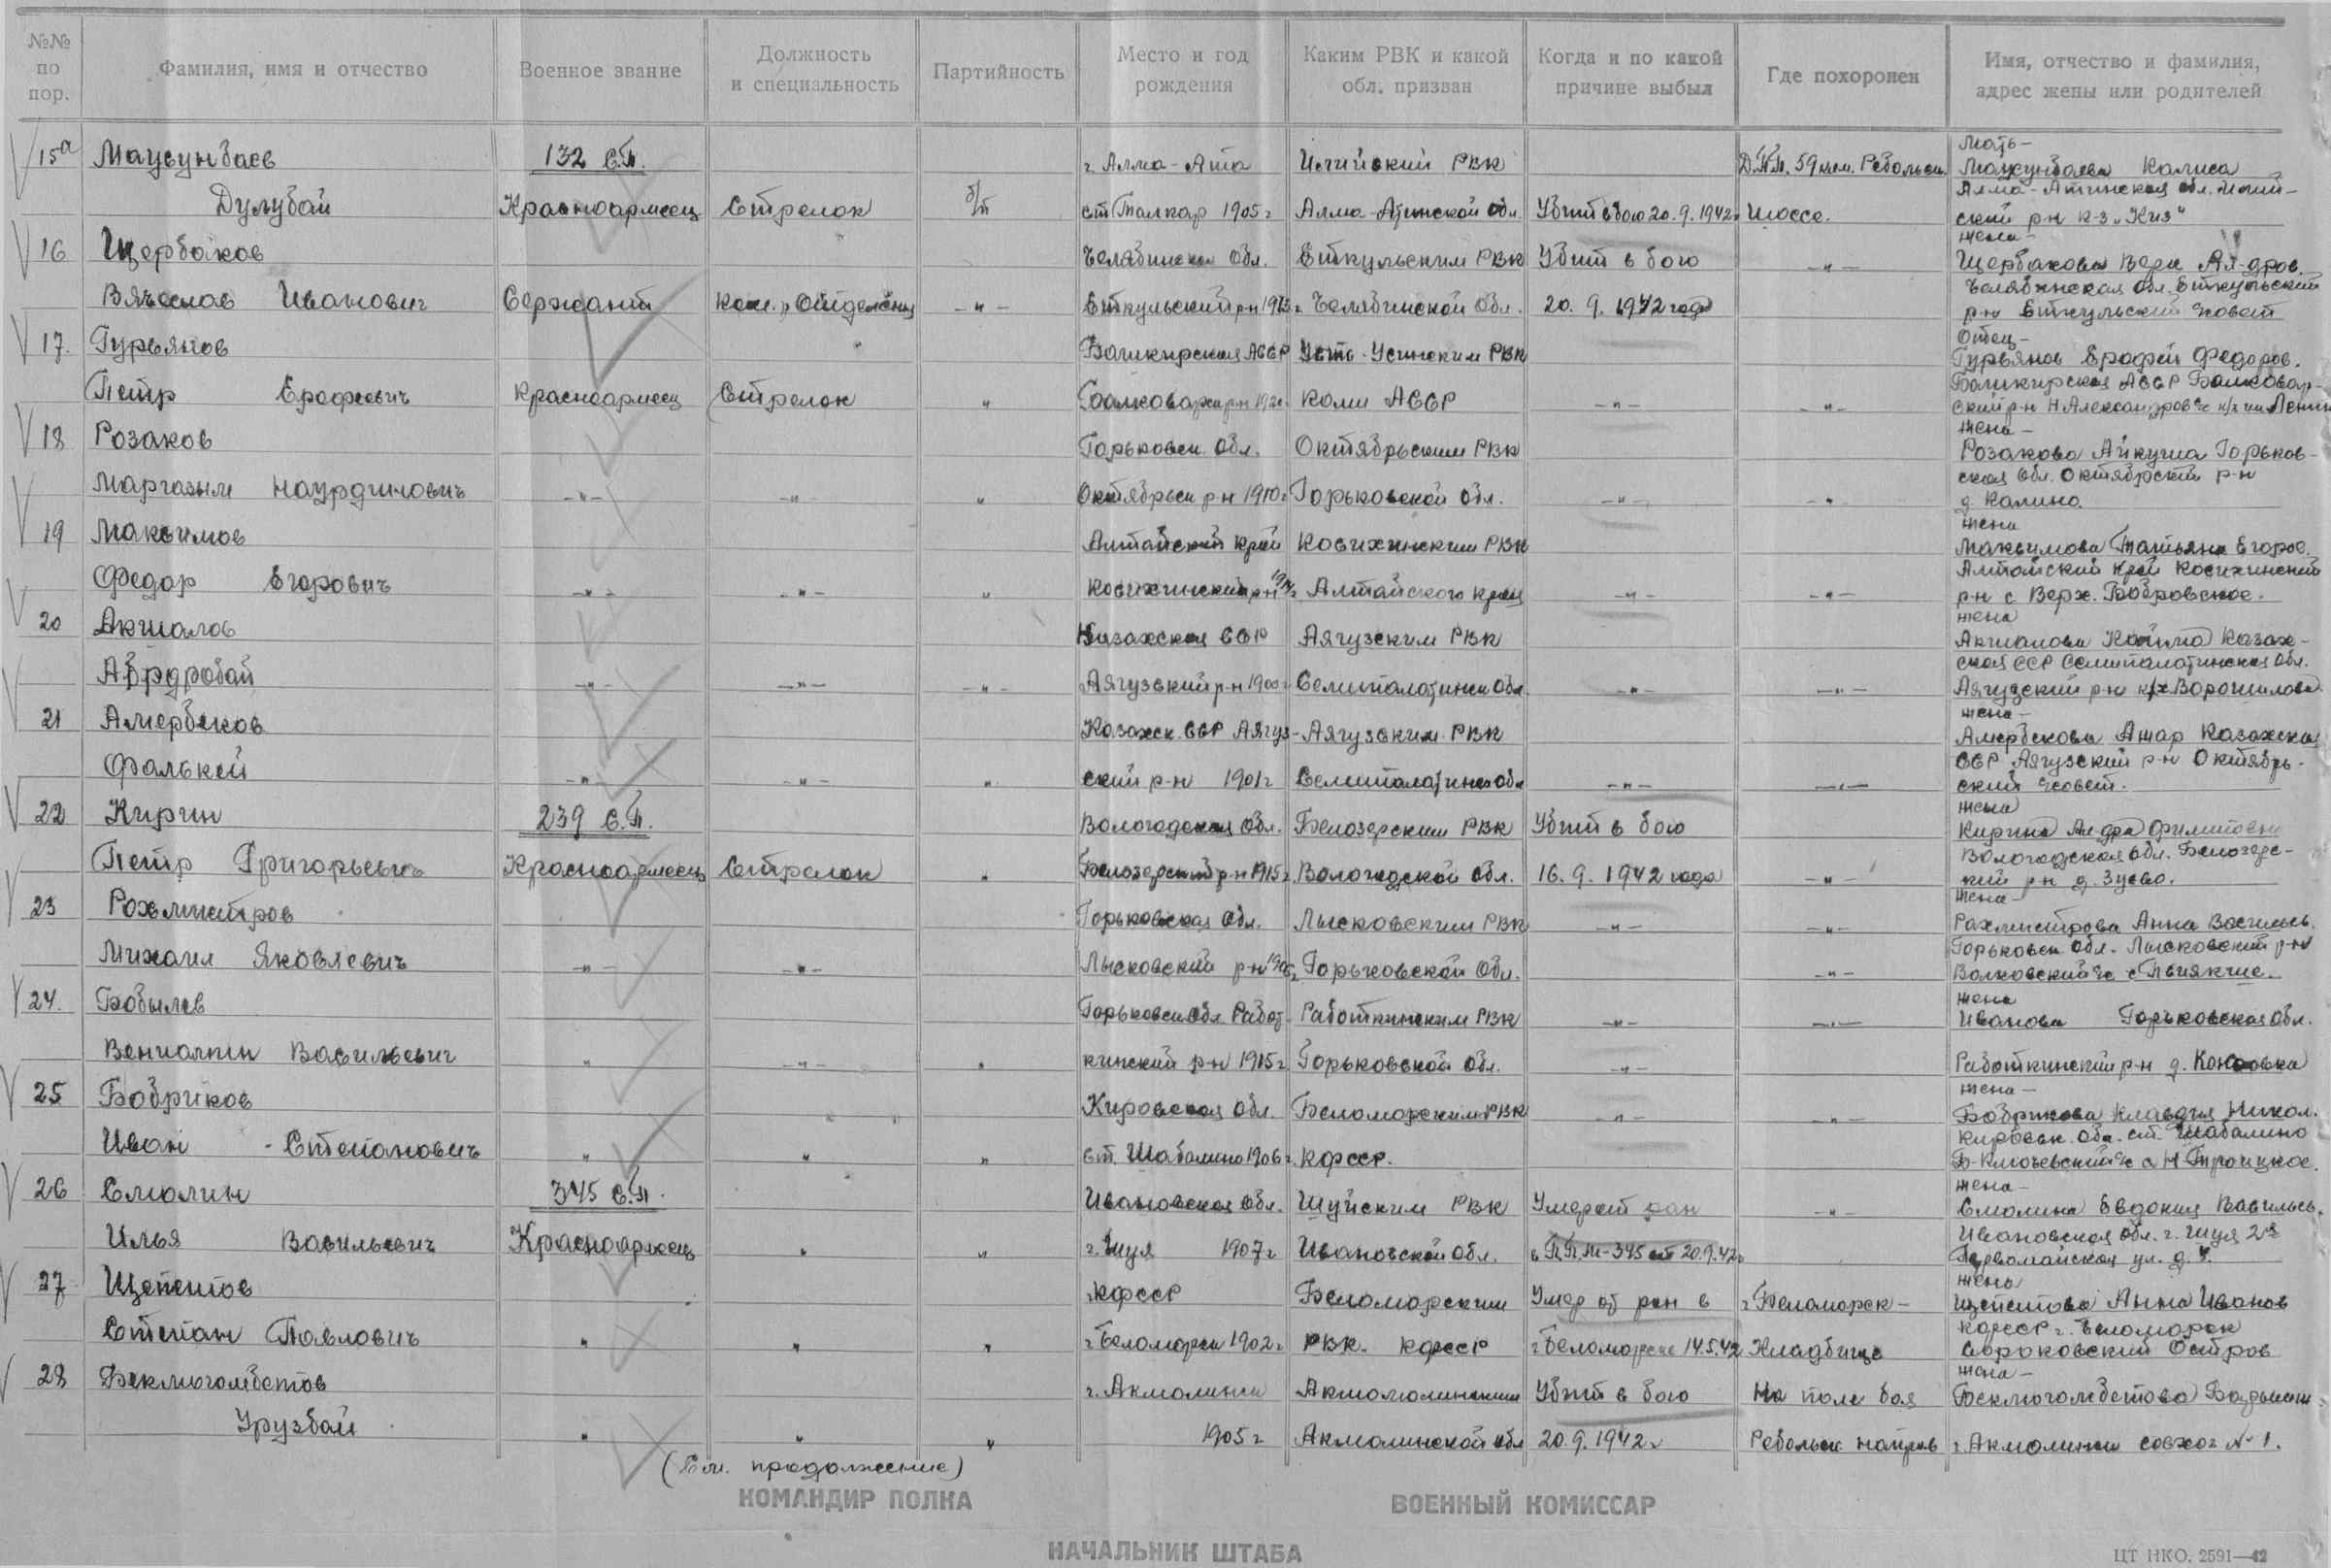 №№ по пор. Фамилия, имя и отчество Военное звание Должность и специальность Партийность Место и год рождения Каким РВК и какой обл. призван Когда и по какой причине выбыл Где похоронен Имя, отчество и фамилия, адрес жены или родителей
Мать-
15а Маусунбаев 132 С.П. г. Алма-Ата Илийский РВК Д.К.П. 59 км. Ребольск. Калиса
Дулубай Красноармеец Стрелок б/п ст Талкар 1905 г Алма-Атинской обл. Убит в бою 20.9.1942г Шоссе. Алма-Атинская обл. Илий-
ский р-н к-з "Киз"
жена-
16 Щербаков Челябинская обл. Еткульским РВК Убит в бою -"- Щербакова Вера Ал-дров.
Вячеслав Иванович Сержант ком. Отделения -"- Еткульский р-н Челябинской обл. 20.9.1942 года Челябинская обл. Еткульский
р-н Еткульский совет
Отец-
17. Гурьянов Башкирская АССР Усть-Усинским РВК Гурьянов Ерофей Федоров.
Петр Ерофеевич Красноармеец Стрелок " р-н Коми АССР -"- -"- Башкирская АССР
ский р-н Н Александров с/с к/х им Ленин
жена-
18 Розаков Горьковск. обл. Октябрьским РВК Розакова Айкуша Горьков-
Маргазым Наурдинович -"- -"- " Октябрьск р-н 1910г Горьковской обл. -"- -"- ская обл. Октябрский р-н
д. Калино.
жена
19 Максимов Алтайский край Косихинским РВК Максимова Татьяна Егоров.
Федор Егорович -"- -"- " Косихинский р-н Алтайского края -"- -"- Алтайский край Косихинский
р-н с Верх. Бобровское.
жена
20 Акшалов Казахская ССР Аягузским РВК Акшалова Казах-
-"- -"- -"- Аягузский р-н 1900г Семипалатинск обл -"- -"- ская ССР Семипалатинская обл.
Аягузский р-н к/х Ворошилова.
жена-
21 Амербеков Казахск. ССР Аягуз- Аягузским РВК Амербекова Ажар Казахская
Фалькей -"- -"- " ский р-н 1901г Семипалатинск обл -"- -"- ССР Аягузский р-н Октябрь-
ский совет.
жена
22 Кирин 239 С.П. Вологодская обл. Белозерским РВК Убит в бою Кирина Ал-дра Филиповн
Петр Григорьевич Красноармеец Стрелок " Белозерский р-н 1915г. Вологодской обл. 16.9.1942 года -"- Вологодская обл. Белозерс-
кий р-н д. Зуево.
жена-
23 Рохмистров Горьковская обл. Лысковским РВК -"- -"- Рахмистрова Анна Васильев.
Михаил Яковлевич -"- -"- Лысковский р-н Горьковской обл. -"- Горьковск. обл. Лысковский р-н
Волковский с/с
жена
24. Бобылев Горьковск обл Работ- Работкинским РВК -"- -"- Иванова Горьковская обл.
Вениамин Васильевич " -"- " кинский р-н 1915г Горьковской обл. -"- Работкинский р-н д.
жена-
25 Бобриков Кировская обл. Беломорским РВК -"- -"- Бобрикова Клавдия Никол.
Иван Степанович " " " ст. Шабалино 1906г. КФССР. Кировск. обл. ст. Шабалино
Б-Ключевский с/с Троицкое.
жена-
26 Смолин 345 С.П. Ивановская обл. Шуйским РВК Умер от ран -"- Смолина Евдокия Васильев.
Илья Васильевич Красноармеец " " г. Шуя 1907г Ивановской обл. в П.П.М-345 сп 20.9.42г Ивановская обл. г. Шуя 2я
Первомайская ул. д.
жена
27 Щепетов КФССР Беломорским Умер от ран в г. Беломорск- Щепетова Анна Иванов
Степан Павлович " " " г. Беломорск 1902г РВК. КФССР г. Беломорске 14.5.42 Кладбище КФССР г. Беломорск
Сороковский Остров
жена-
28 Бекмогомбетов г. Акмолинск Акмолинским Убит в бою На поле боя Бекмогомбетова
Урузбай " " " 1905г Акмолинской обл 20.9.1942г Ребольск направ г. Акмолинск совхоз №1.
(См. продолжение)
КОМАНДИР ПОЛКА ВОЕННЫЙ КОМИССАР
НАЧАЛЬНИК ШТАБА
ЦТ НКО. 2591—42